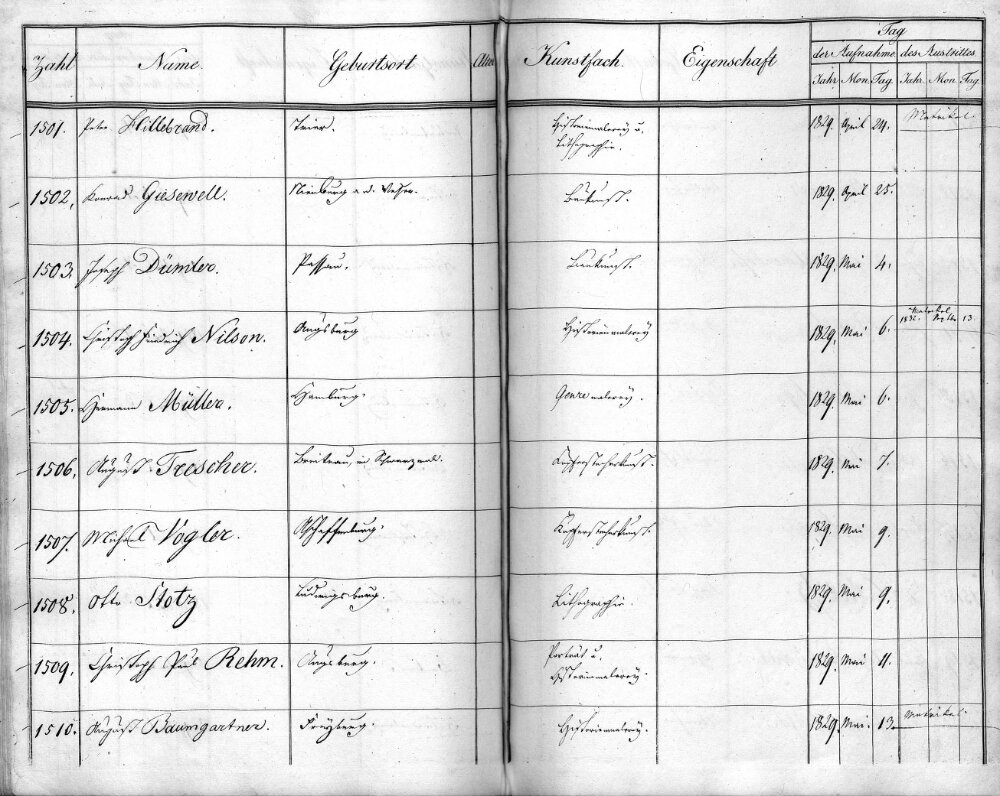 Tag
Zahl Name. Geburtsort Alter Kunstfach. Eigenschaft der Aufnahme des Austrittes
Jahr Mon. Tag Jahr Mon Tag
1501. Peter Hillebrand. Trier. Historienmalerey u. 1829. April 24. Matrikel.
Lithographie.
1502, Konrad Giesewell. Nienburg a. d. Weser. Baukunst. 1829. April 25.
1503. Joseph Dümler. Passau. Baukunst. 1829. Mai 4.
1504. Christoph Friedrich Nilson. Augsburg Historienmalerey 1829, Mai 6. Matrikel
1832. 13.
1505. Hermann Müller. Hamburg. Genremalerey. 1829. Mai 6.
1506, August Trescher. in Kupferstecherkunst. 1829. Mai 7.
1507. Michael Vogler. Aschaffenburg. Kupferstecherkunst. 1829. Mai 9.
1508. Otto Stotz Ludwigsburg. Lithographie. 1829. Mai 9.
1509. Christoph Paul Rehm. Augsburg. Porträt u. 1829. Mai 11.
Historienmalerey.
1510. August Baumgartner. Freyburg. Historienmalerey. 1829. Mai. 13. Matrikel.